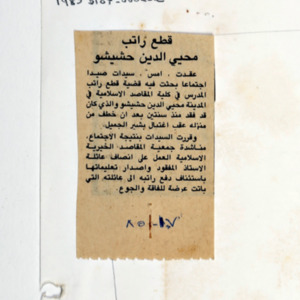 قطع راتب
محيي الدين حشيشو
عقدت، امس، سيدات صيدا
اجتماعا بحثت فيه قضية قطع راتب
المدرس في كلية المقاصد الاسلامية في
المدينة محيي الدين حشيشو والذي كان
قد فقد منذ سنتين بعد ان خطف من
منزله عقب اغتيال بشير الجميل.
وقررت السيدات بنتيجة الاجتماع،
مناشدة جمعية المقاصد الخيرية
الاسلامية العمل على انصاف عائلة
الاستاذ المفقود واصدار تعليماتها
باستئناف دفع راتبه الى عائلته التي
باتت عرضة للفاقة والجوع.